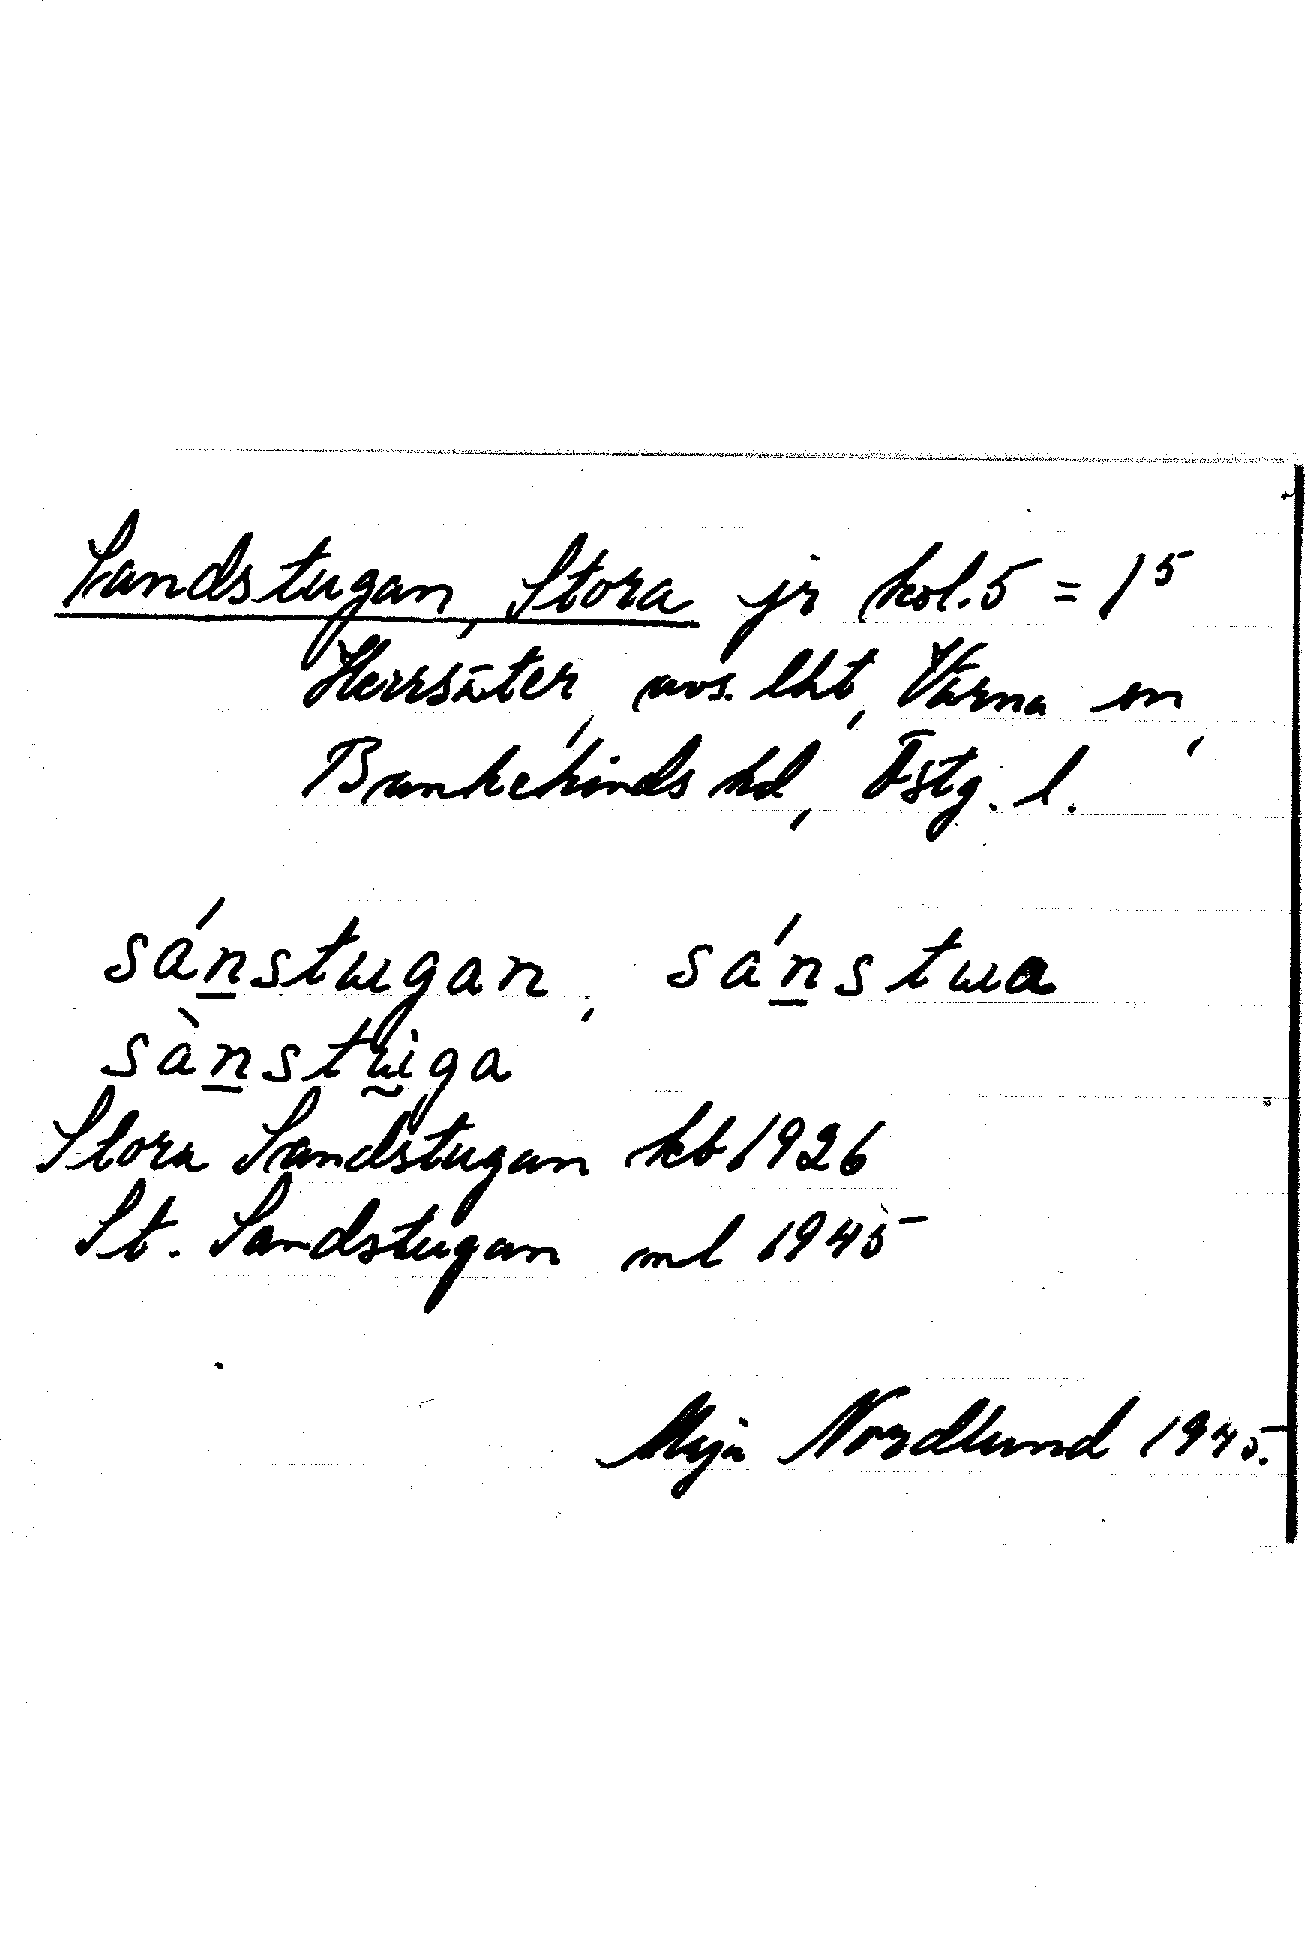 Sandstugan, Stora jr kol. 5 = 1⁵
Herrsäter, avs. lht, Värna sn,
Bankekinds hd, Östg. l.
sánstugan, sánstua
sànstuga
Stora Sandstugan kb 1926
St. Sandstugan ml 1945
Maja Nordlund 1945.